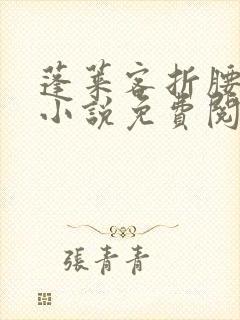 蓬萊客折腰
小說免費閱
張青青